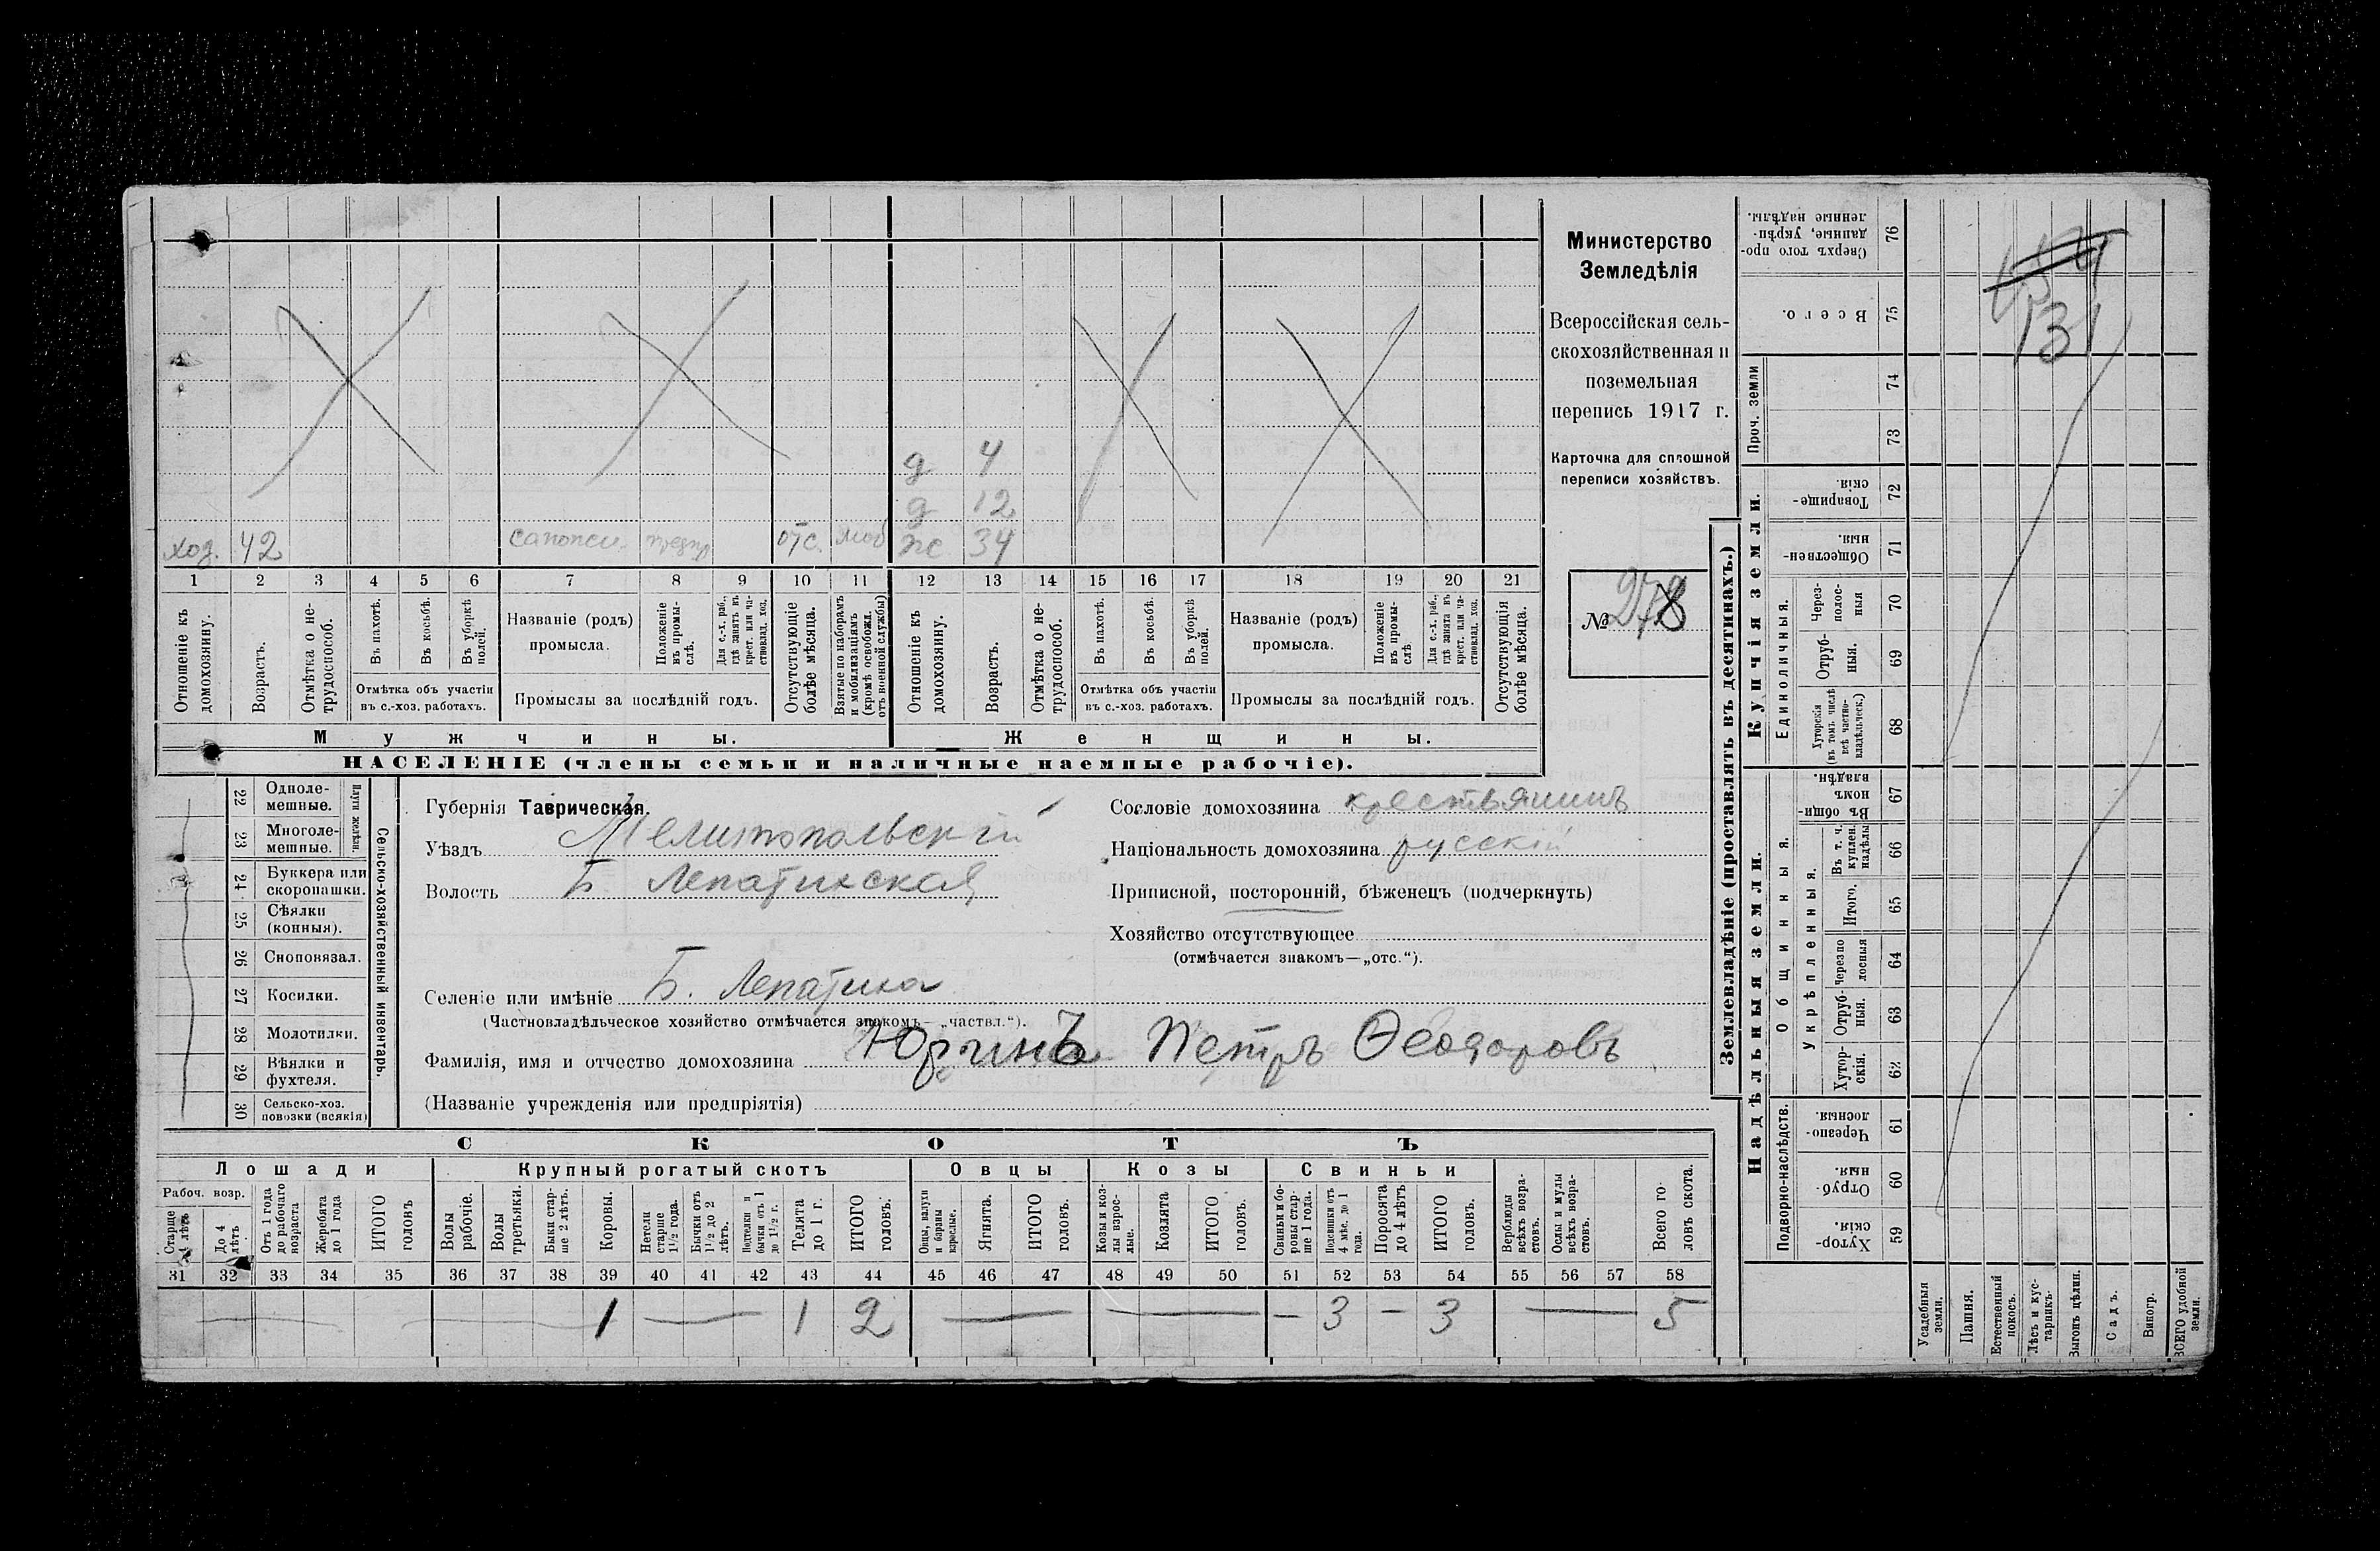 Министерство
Земледѣлія
Всероссійская сель-
скохозяйственная и
поземельная
перепись 1917 г.
Карточка для сплошной
переписи хозяйствъ.
№ 278
д 4
д 12
хоз. 42 сапожн. предпр отс. моб ж 34
1 2 3 4 5 6 7 8 9 10 11 12 13 14 15 16 17 18 19 20 21
Отношеніе къ домохозяину.
Возрастъ.
Отмѣтка о не-трудоспособ.
Въ пахотѣ.
Въ косьбѣ.
Въ уборкѣ полей.
Отмѣтка объ участіи
въ с.-хоз. работахъ.
Названіе (родъ)
промысла.
Положеніе въ промы-слѣ.
Для с.-х. раб., гдѣ занятъ въ крест. или ча-стновлад. хоз.
Промыслы за послѣдній годъ.
Отсутствующіе болѣе мѣсяца.
Взятые по наборамъ и мобилизаціямъ (кромѣ освобожд. отъ военной службы)
Отношеніе къ домохозяину.
Возрастъ.
Отмѣтка о не-трудоспособ.
Въ пахотѣ.
Въ косьбѣ.
Въ уборкѣ полей.
Отмѣтка объ участіи
въ с.-хоз. работахъ.
Названіе (родъ)
промысла.
Положеніе въ промы-слѣ.
Для с.-х. раб., гдѣ занята въ крест. или ча-стновлад. хоз.
Промыслы за послѣдній годъ.
Отсутствующія болѣе мѣсяца.
Мужчины. Женщины.
НАСЕЛЕНІЕ (члены семьи и наличные наемные рабочіе).
Сельско-хозяйственный инвентарь.
Плуги желѣзн.
22 Одноле-мешные.
23 Многоле-мешные.
24 Буккера или скоропашки.
25 Сѣялки (конныя).
26 Сноповязал.
27 Косилки.
28 Молотилки.
29 Вѣялки и фухтеля.
30 Сельско-хоз. повозки (всякія)
Губернія Таврическая.
Уѣздъ Мелитопольскій
Волость Б Лепатихская
Селеніе или имѣніе Б. Лепатиха
(Частновладѣльческое хозяйство отмѣчается знакомъ—„частвл.“).
Фамилія, имя и отчество домохозяина Юргинъ Петръ Ѳеодоровъ
(Названіе учрежденія или предпріятія)
Сословіе домохозяина крестьянинъ
Національность домохозяина русскій
Приписной, посторонній, бѣженецъ (подчеркнуть)
Хозяйство отсутствующее
(отмѣчается знакомъ—„отс.“).
СКОТЪ
Лошади Крупный рогатый скотъ Овцы Козы Свиньи
Рабоч. возр.
Старще 4 лѣтъ
До 4 лѣтъ
Отъ 1 года до рабочаго возраста
Жеребята до 1 года
ИТОГО головъ
Волы рабочіе.
Волы третьяки.
Быки стар-ше 2 лѣтъ.
Коровы.
Нетели старше 1½ года.
Бычки отъ 1½ до 2 лѣтъ.
Подтелки и бычки отъ 1 до 1½ г.
Телята до 1 г.
ИТОГО головъ.
Овцы, валухи и бараны взрослые.
Ягнята.
ИТОГО головъ.
Козы и коз-лы взрос-лые.
Козлята
ИТОГО головъ.
Свиньи и бо-ровы стар-ше 1 года.
Подсвинки отъ 4 мѣс. до 1 года.
Поросята до 4 лѣтъ
ИТОГО головъ.
Верблюды всѣхъ возра-стовъ.
Ослы и мулы всѣхъ возра-стовъ.
Всего го-ловъ скота.
31 32 33 34 35 36 37 38 39 40 41 42 43 44 45 46 47 48 49 50 51 52 53 54 55 56 57 58
1 — 1 2 — — — 3 — 3 — 5
Землевладѣніе (проставлять въ десятинахъ.)
Надѣльныя земли. Купчія земли.
Проч. земли
Подворно-наслѣдств.
Общинныя.
Укрѣпленныя.
Единоличныя.
Сверхъ того про-данные, укрѣп-ленные надѣлы. 76
Всего. 75
74
73
Товарище-скія. 72
Обществен-ныя. 71
Через-полос-ныя 70
Отруб-ныя. 69
Хуторскія (въ томъ числѣ всѣ частно-владѣльческ.) 68
Въ общи-номъ владѣн. 67
Въ т. ч. куплен. надѣлы 66
Итого. 65
Черезпо-лосныя 64
Отруб-ныя. 63
Хутор-скія. 62
Черезпо-лосныя. 61
Отруб-ныя. 60
Хутор-скія. 59
131
Усадебныя земли.
Пашня.
Естественный покосъ.
Лѣсъ и кус-тарникъ.
Выгонъ цѣлин.
Садъ.
Виногр.
ВСЕГО удобной земли.